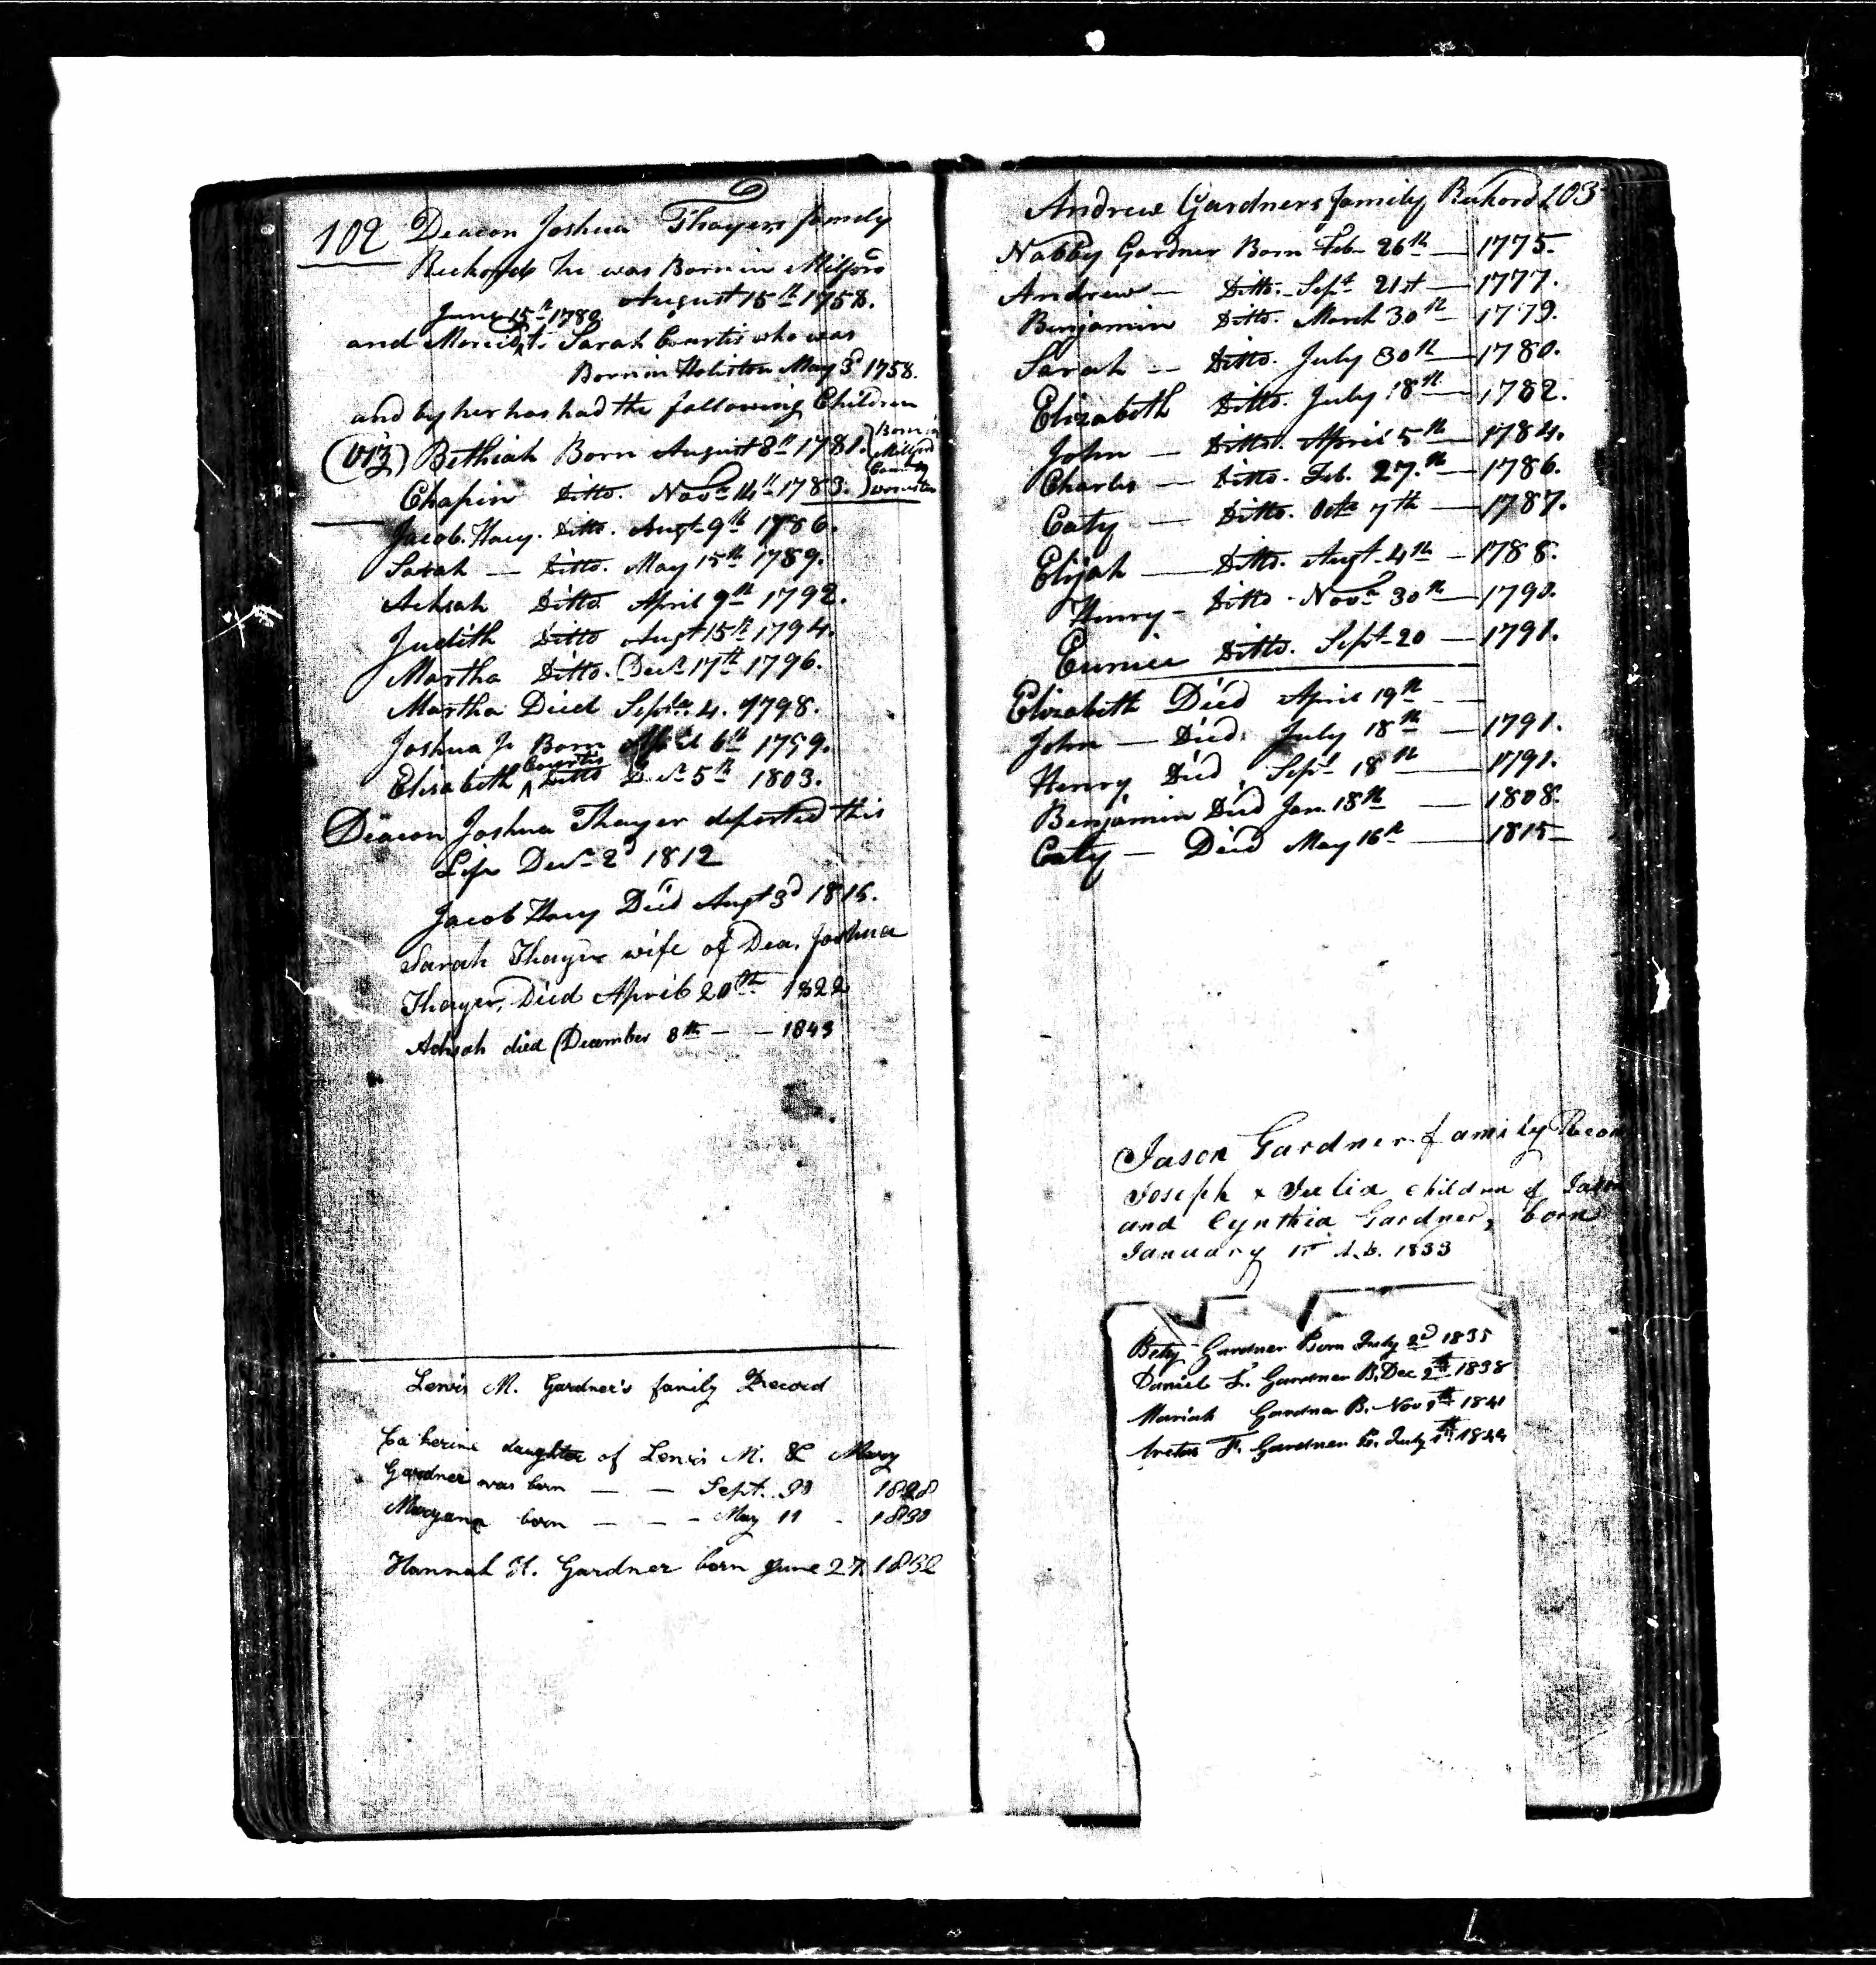 102 Deacon Joshua Thayers family
Reckords he was Born in Milford
August 15th 1758.
June 15th 1780
and Maried to Sarah Courtis who was
Born in Holiston May 3d 1758.
and by her has had the following Children
(viz) Bethiah Born August 8th 1781. Born in
Milford
County
Worcester
Chapin Ditto. Novr 14th 1783.
Jacob. Ditto. Augt 9th 1786.
Sarah — Ditto. May 15th 1789.
Achsah Ditto April 9th 1792.
Judith Ditto Augt 15th 1794.
Martha Ditto. Decr 17th 1796.
Martha Died Septr 4. 1798.
Joshua Jr Born April 6th 1799.
Elisabeth Courtis Ditto Decr 5th 1803.
Deacon Joshua Thayer departed this
Life Decr 2d 1812
Jacob Died Augt 3d 1816.
Sarah Thayer wife of Dea. Joshua
Thayer, Died April 20th 1822
Achsah died December 8th — — 1843
Lewis M. Gardner's family Record
Catherine daughter of Lewis M. & Mary
Gardner was born — — Sept. 1828
Maryann born — — - May 11 - 1830
Hannah H. Gardner born June 27. 1832
Andrew Gardners family Reckord 103
Nabby Gardner Born Feb 26th — 1775.
Andrew — Ditto. Sept 21st — 1777.
Benjamin Ditto. March 30th — 1779.
Sarah — Ditto. July 30th — 1780.
Elizabeth Ditto. July 18th — 1782.
John — Ditto. April 5th — 1784.
Charles — Ditto. Feb. 27.th — 1786.
Caty — Ditto. Octr 7th — 1787.
Elijah — Ditto. Augt 4th — 1788.
Henry - Ditto - Novr 30th — 1790.
Eunice Ditto. Sept 20 — 1791.
Elizabeth Died April 19th - —
John — Died. July 18th — 1791.
Henry Died, Sept 18th — 1791.
Benjamin Died Jan. 18th — 1808.
Caty — Died May 16th — 1815
Jason Gardner family
Joseph & Julia children of Jason
and Cynthia Gardner, born
January 1st A.D. 1833
Betsy Gardner Born July 2d 1835
Daniel Gardner B. Dec 2th 1838
Mariah Gardner B. Nov 1841
F. Gardner B. July